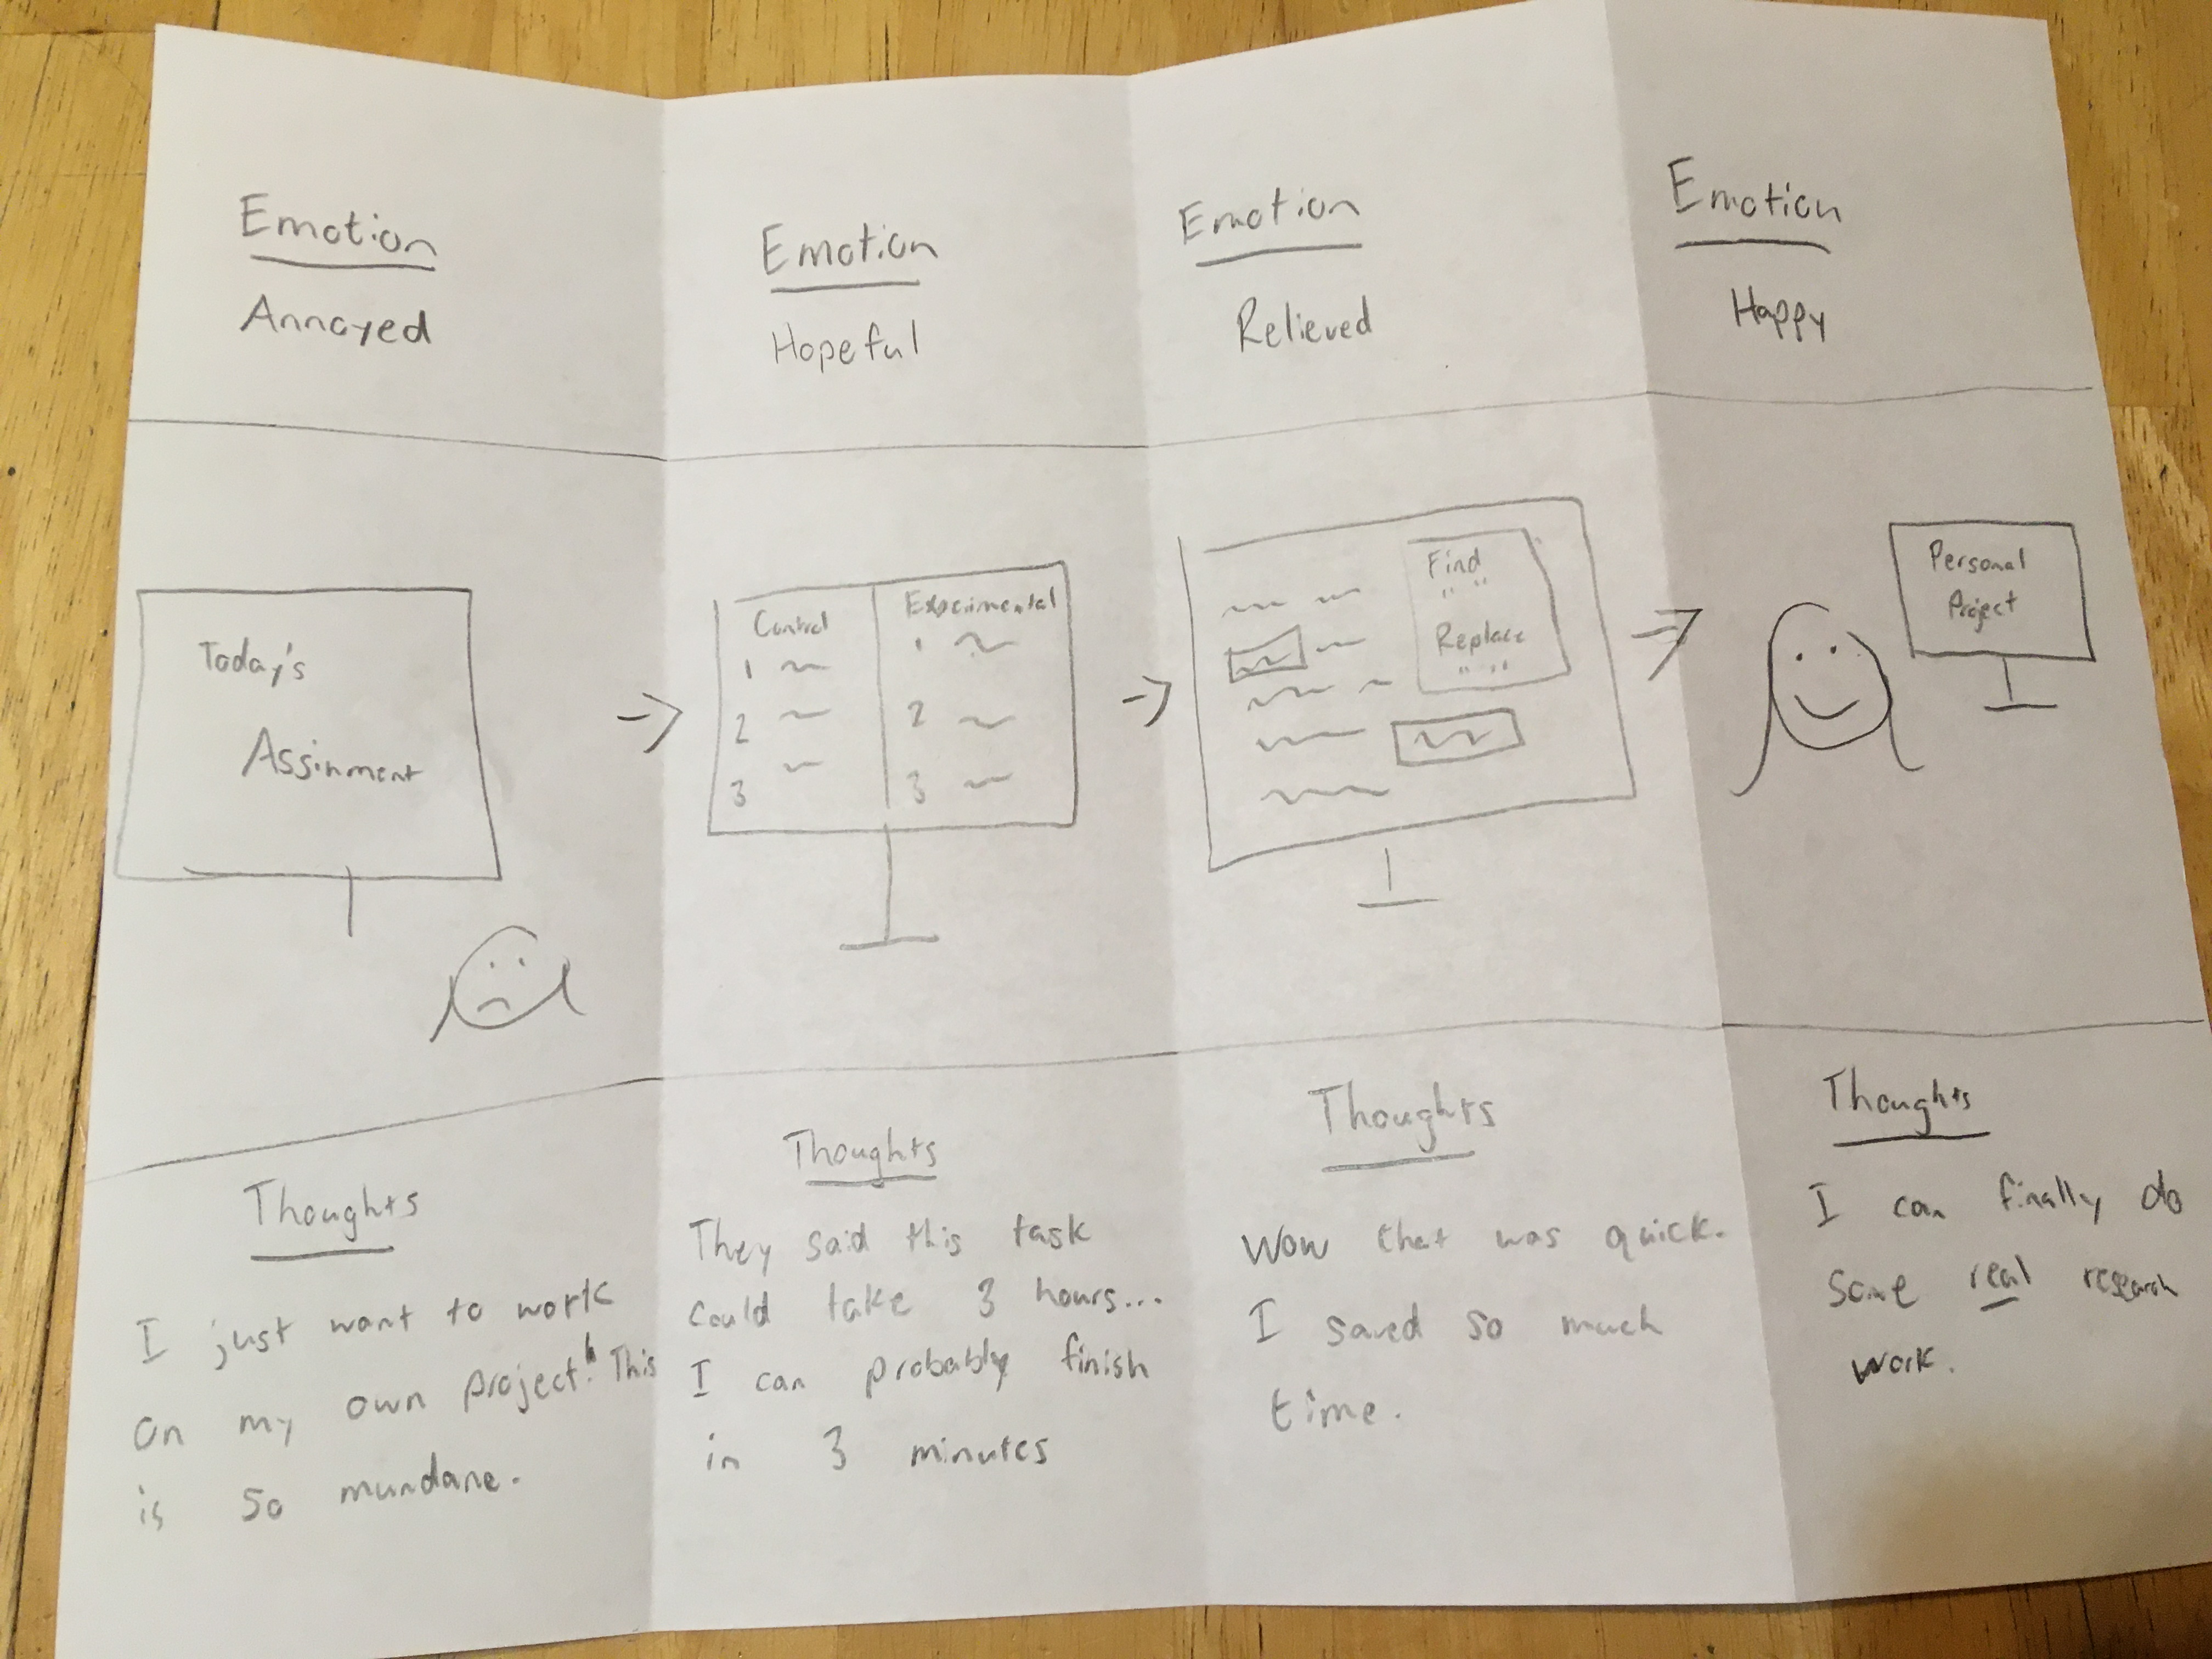 Emotion
Annoyed
Today's
Assinment
Thoughts
I just want to work
on my own project! This
is so mundane.
Emotion
Hopeful
Control
1
2
3
Experimental
1
2
3
Thoughts
They said this task
Could take 3 hours...
I can probably finish
in 3 minutes
Emotion
Relieved
Find
" "
Replace
" "
Thoughts
Wow that was quick.
I saved so much
time.
Emotion
Happy
Personal
Project
Thoughts
I can finally do
some real research
work.